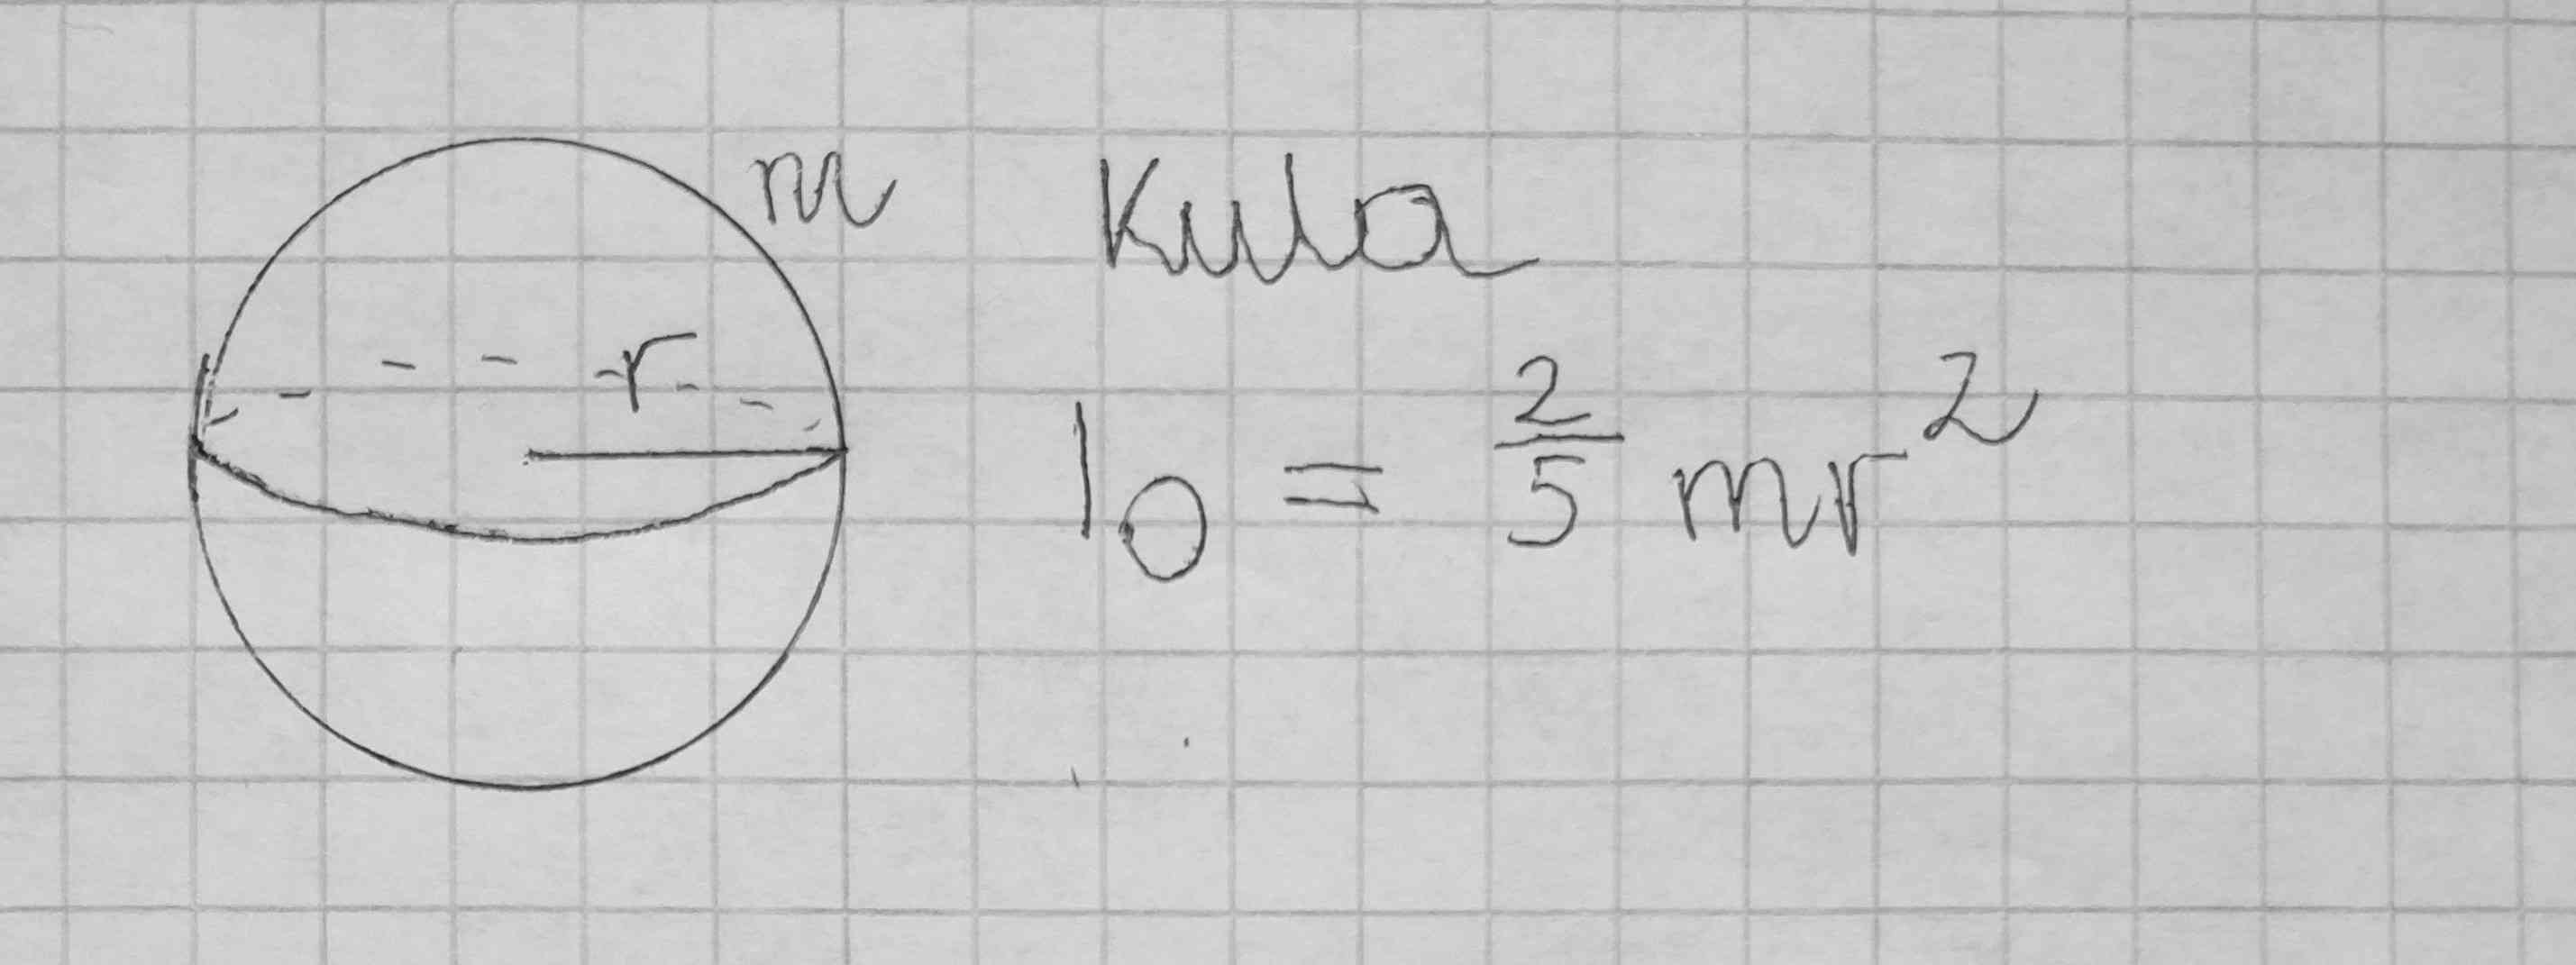 m
Kula
r
I₀ = 2/5 mr²